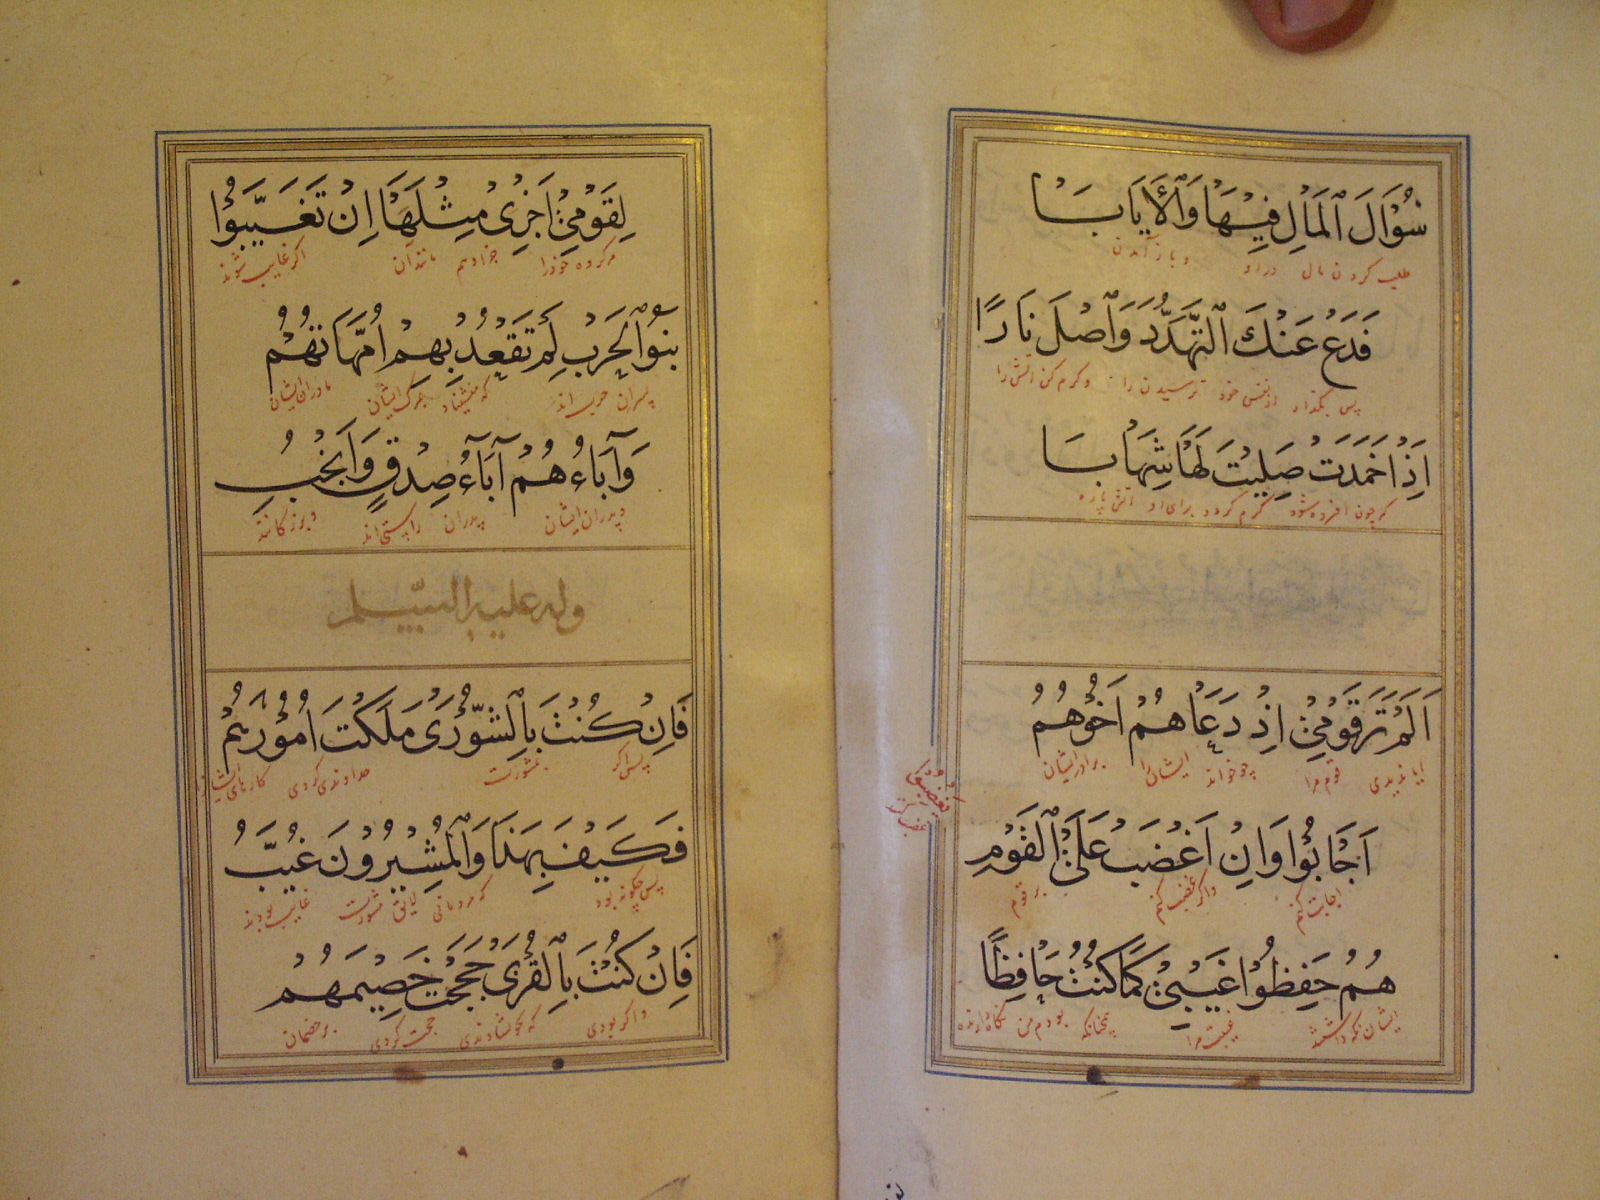 سُؤَالَ الْمَالِ فِيهَا وَالْأَيَابَا
طلب کردن مال در او و باز آمدن
فَدَعْ عَنْكَ التَّهَدُّدَ وَاصْلَ نَارًا
پس بگذار از نفس خود ترسیدن را و گرم کن آتش را
اِذَا خَمَدَتْ صَلِيَتْ لَهَا شِهَابَا
که چون افزده شود گرم کردد برای او آتش پاره
اَلَمْ تَرَ قَوْمِيْ اِذْ دَعَاهُمْ اَخُوْهُمُ
ایا ندیدی قوم مرا چو خواند ایشان را برادر ایشان
اَجَابُوْا وَاِنْ اَغْضَبْ عَلَى الْقَوْمِ
اجابت کنم و اگر غضب کنم بر قوم
هُمُ حَفِظُوْا غَيْبِيْ كَمَا كُنْتُ حَافِظًا
ایشان نکه داشتند غیبت مرا چنانکه بودم من نگاه دارنده
لِقَوْمِيْ اَجْزِى مِثْلَهَا اِنْ تَغَيَّبُوْا
مر گروه خود را جزا دهم مانند آن اگر غایب شوند
بَنُو الْحَرْبِ لَمْ تَقْعُدْ بِهِمْ اُمَّهَاتُهُمْ
پسران حرب اند که ننشیناد ایشان مادران ایشان
وَآبَاءُ هُمْ آبَاءُ صِدْقٍ وَاَنْجُبُ
و پدران ایشان پدران راستی اند
وله عليه السلم
فَاِنْ كُنْتَ بِالشُّوْرَى مَلَكْتَ اُمُوْرَهُمْ
پس اگر بمشورت خداوندی کردی کارهای ایشان را
فَكَيْفَ بِهَذَا وَالْمُشِيْرُوْنَ غُيَّبُ
پس چگونه بود که مردمانی لایق مشورت غایب بودند
فَاِنْ كُنْتَ بِالْقُرْبَى حَجَجْتَ خَصِيْمَهُمْ
و اگر بودی حجت کردی بر خصمان